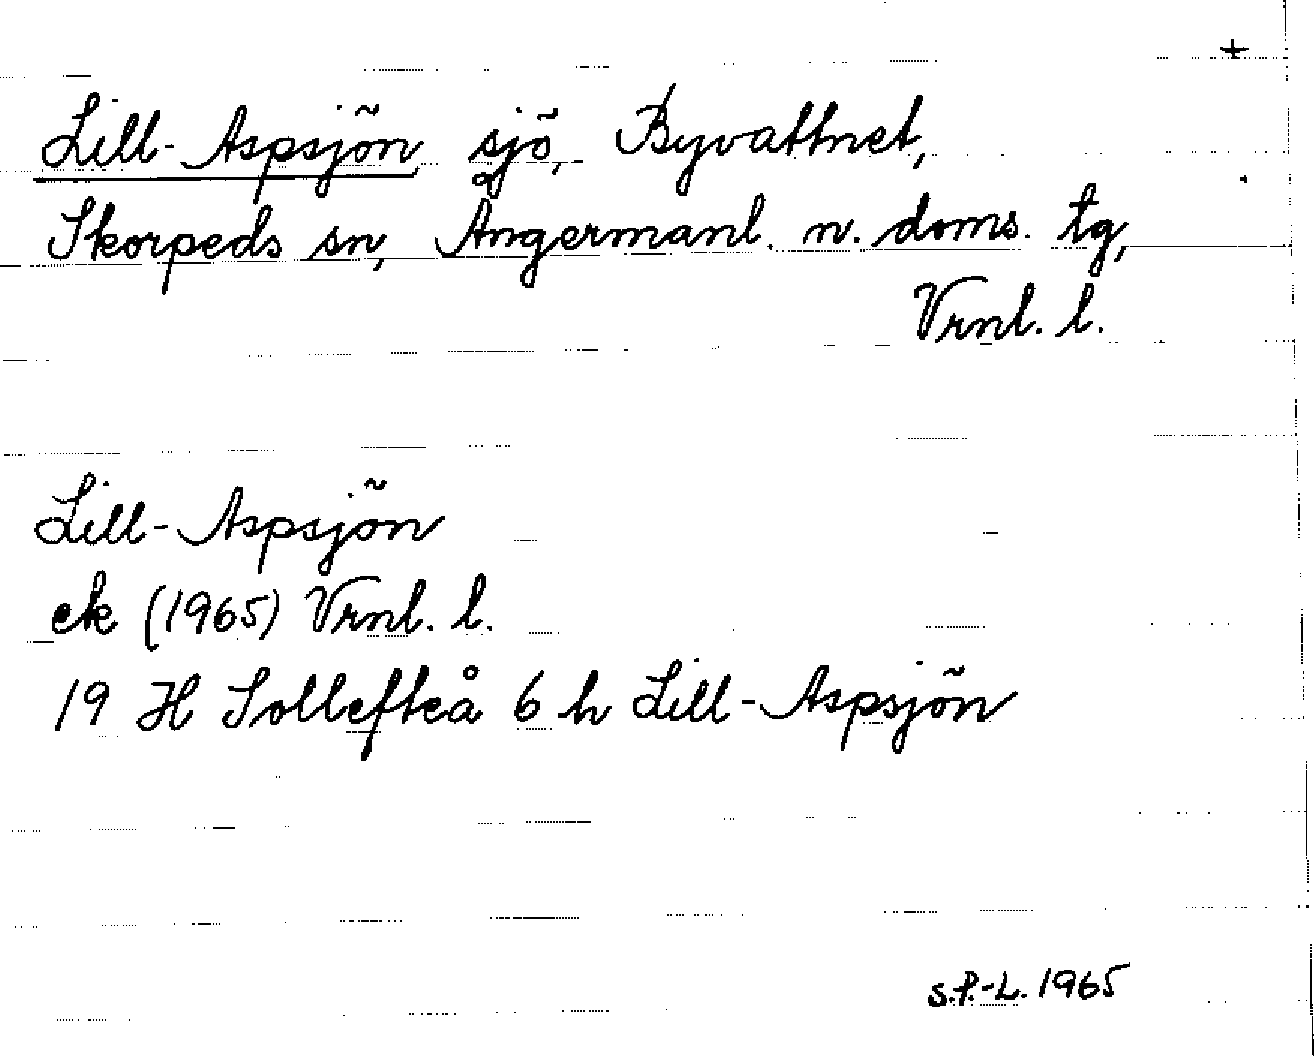 +
Lill-Aspsjön sjö, Byvattnet,
Skorpeds sn, Ångermanl. n. doms. tg,
Vrnl. l.
Lill-Aspsjön
ek (1965) Vrnl. l.
19 H Sollefteå 6 h Lill-Aspsjön
S.P.-L. 1965